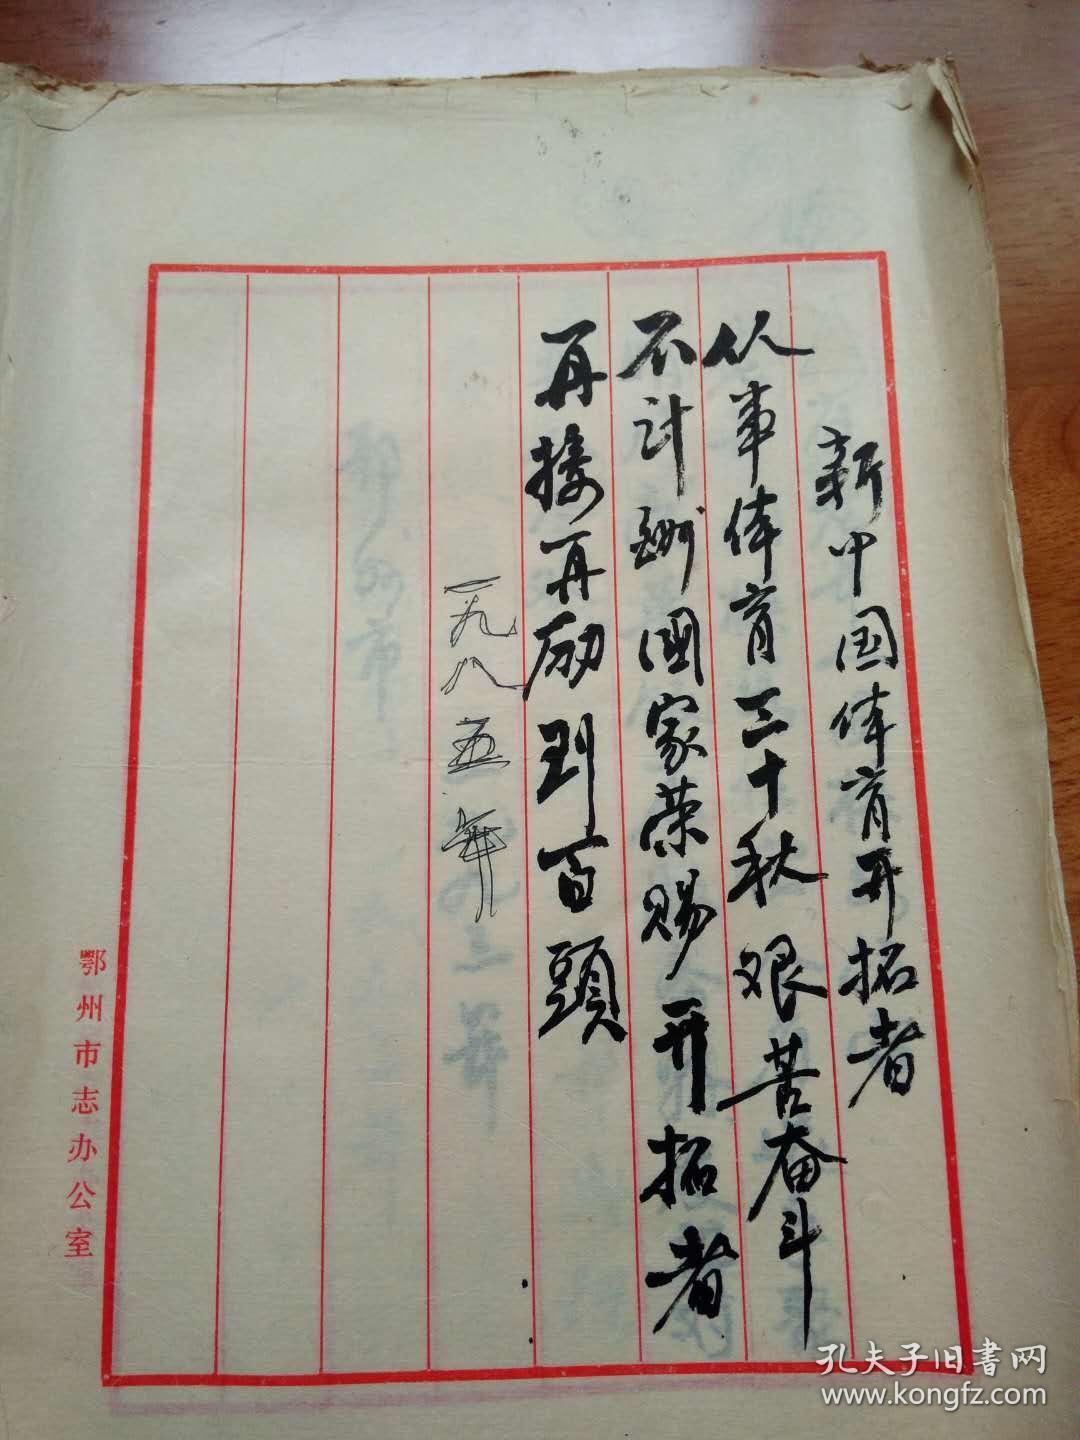 新中国体育开拓者
从事体育三十秋艰苦奋斗
不计酬國家荣赐开拓者
再接再励到百頭
一九八五年
鄂州市志办公室
孔夫子旧書网
www.kongfz.com